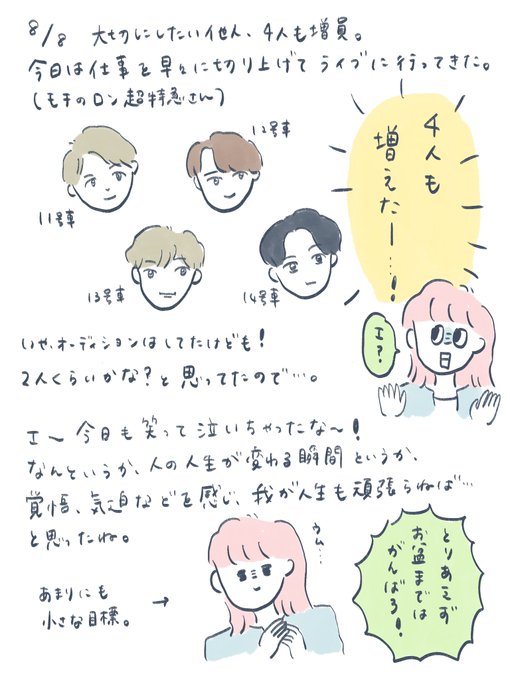 8/8 大切にしたいイせん、4人も増員。
今日は仕事を早々に切り上げてライブに行ってきた。
(モチのロン超特急さん)
11号車
12号車
13号車
14号車
4人も
増えたー…!
エ?
いや、オーディションはしてたけども!
2人くらいかな?と思ってたので…。
エ〜今日も笑って泣いちゃったな〜!
なんというか、人の人生が変わる瞬間というか、
覚悟、気迫などを感じ、我が人生も頑張らねば…
と思ったね。
あまりにも
小さな目標。
→
ウム…
とりあえず
お盆までは
がんばろ!